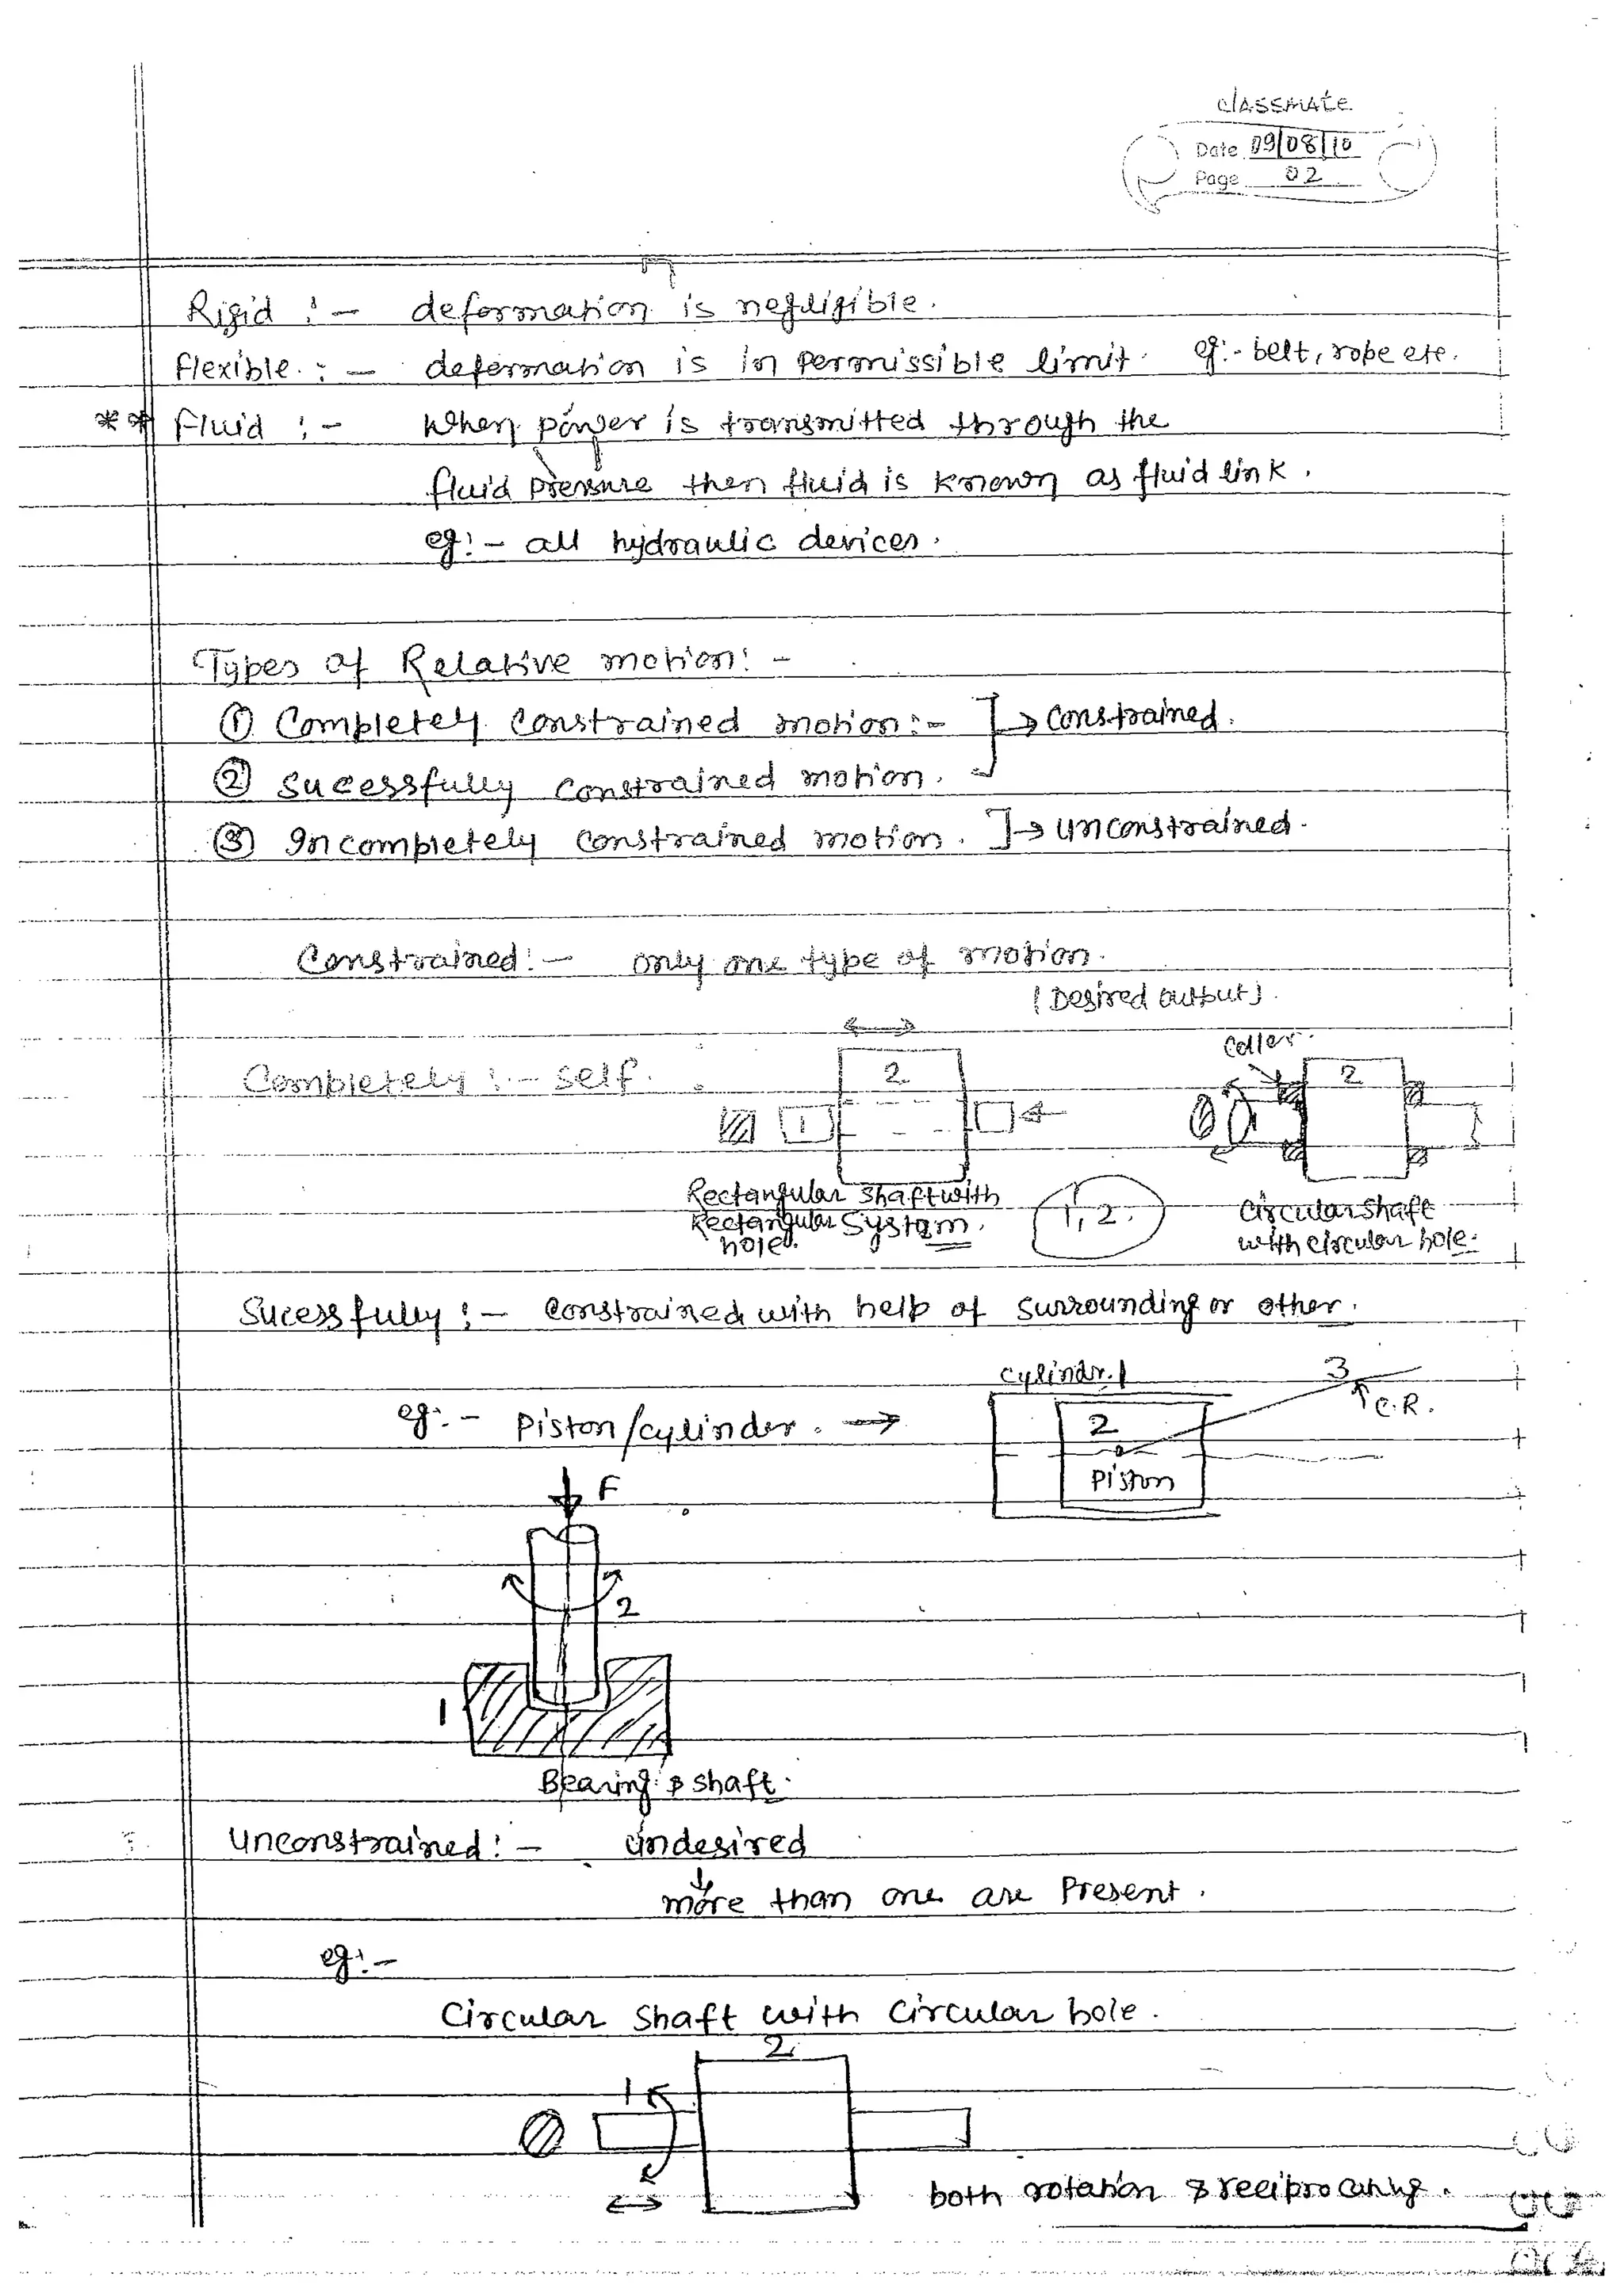 classmate
Date 09/08/10
Page 02
Rigid :- deformation is negligible.
flexible :- deformation is in permissible limit. eg:- belt, rope etc.
** Fluid :- When power is transmitted through the
fluid pressure then fluid is known as fluid link.
eg:- all hydraulic devices.
Types of Relative motion:-
① Completely constrained motion:- ] → constrained.
② Sucessfully constrained motion.
③ Incompletely constrained motion. ] → unconstrained.
Constrained:- only one type of motion.
(Desired output).
Completely :- self.
2
1
Coller
2
1
Rectangular shaft with
Rectangular System.
hole.
1, 2.
circular shaft
with circular hole.
Sucessfully :- constrained with help of surrounding or other.
eg:- Piston/cylinder. →
cylindr. 1
2
Piston
3
C.R.
F
2
1
Bearing & shaft.
Unconstrained:- undesired
↓
more than one are Present.
eg:-
Circular Shaft with Circular hole.
2
1
both rotation & reciprocating.